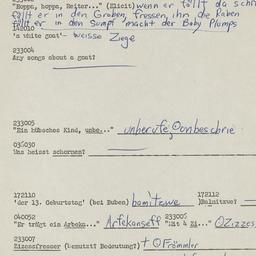 "Hoppa, hoppa, Reiter..." (Elicit) wenn er fällt da schr
fällt er in den Graben, fressen ihn die Raben
fällt er in den Sumpf macht der Baby Plumps
142010
'a white goat'- weisse Ziege
233004
Any songs about a goat?
233005
"Ein hübsches Kind, unbe..." unberufe
030030
Was heisst schornen?
172110 172112
'der 13. Geburtstag' (bei Buben)
040052 233006
"Er trägt ein Arbeka..."
233007
Zizessfresser (benutzt? Bedeutung?) Frömmler